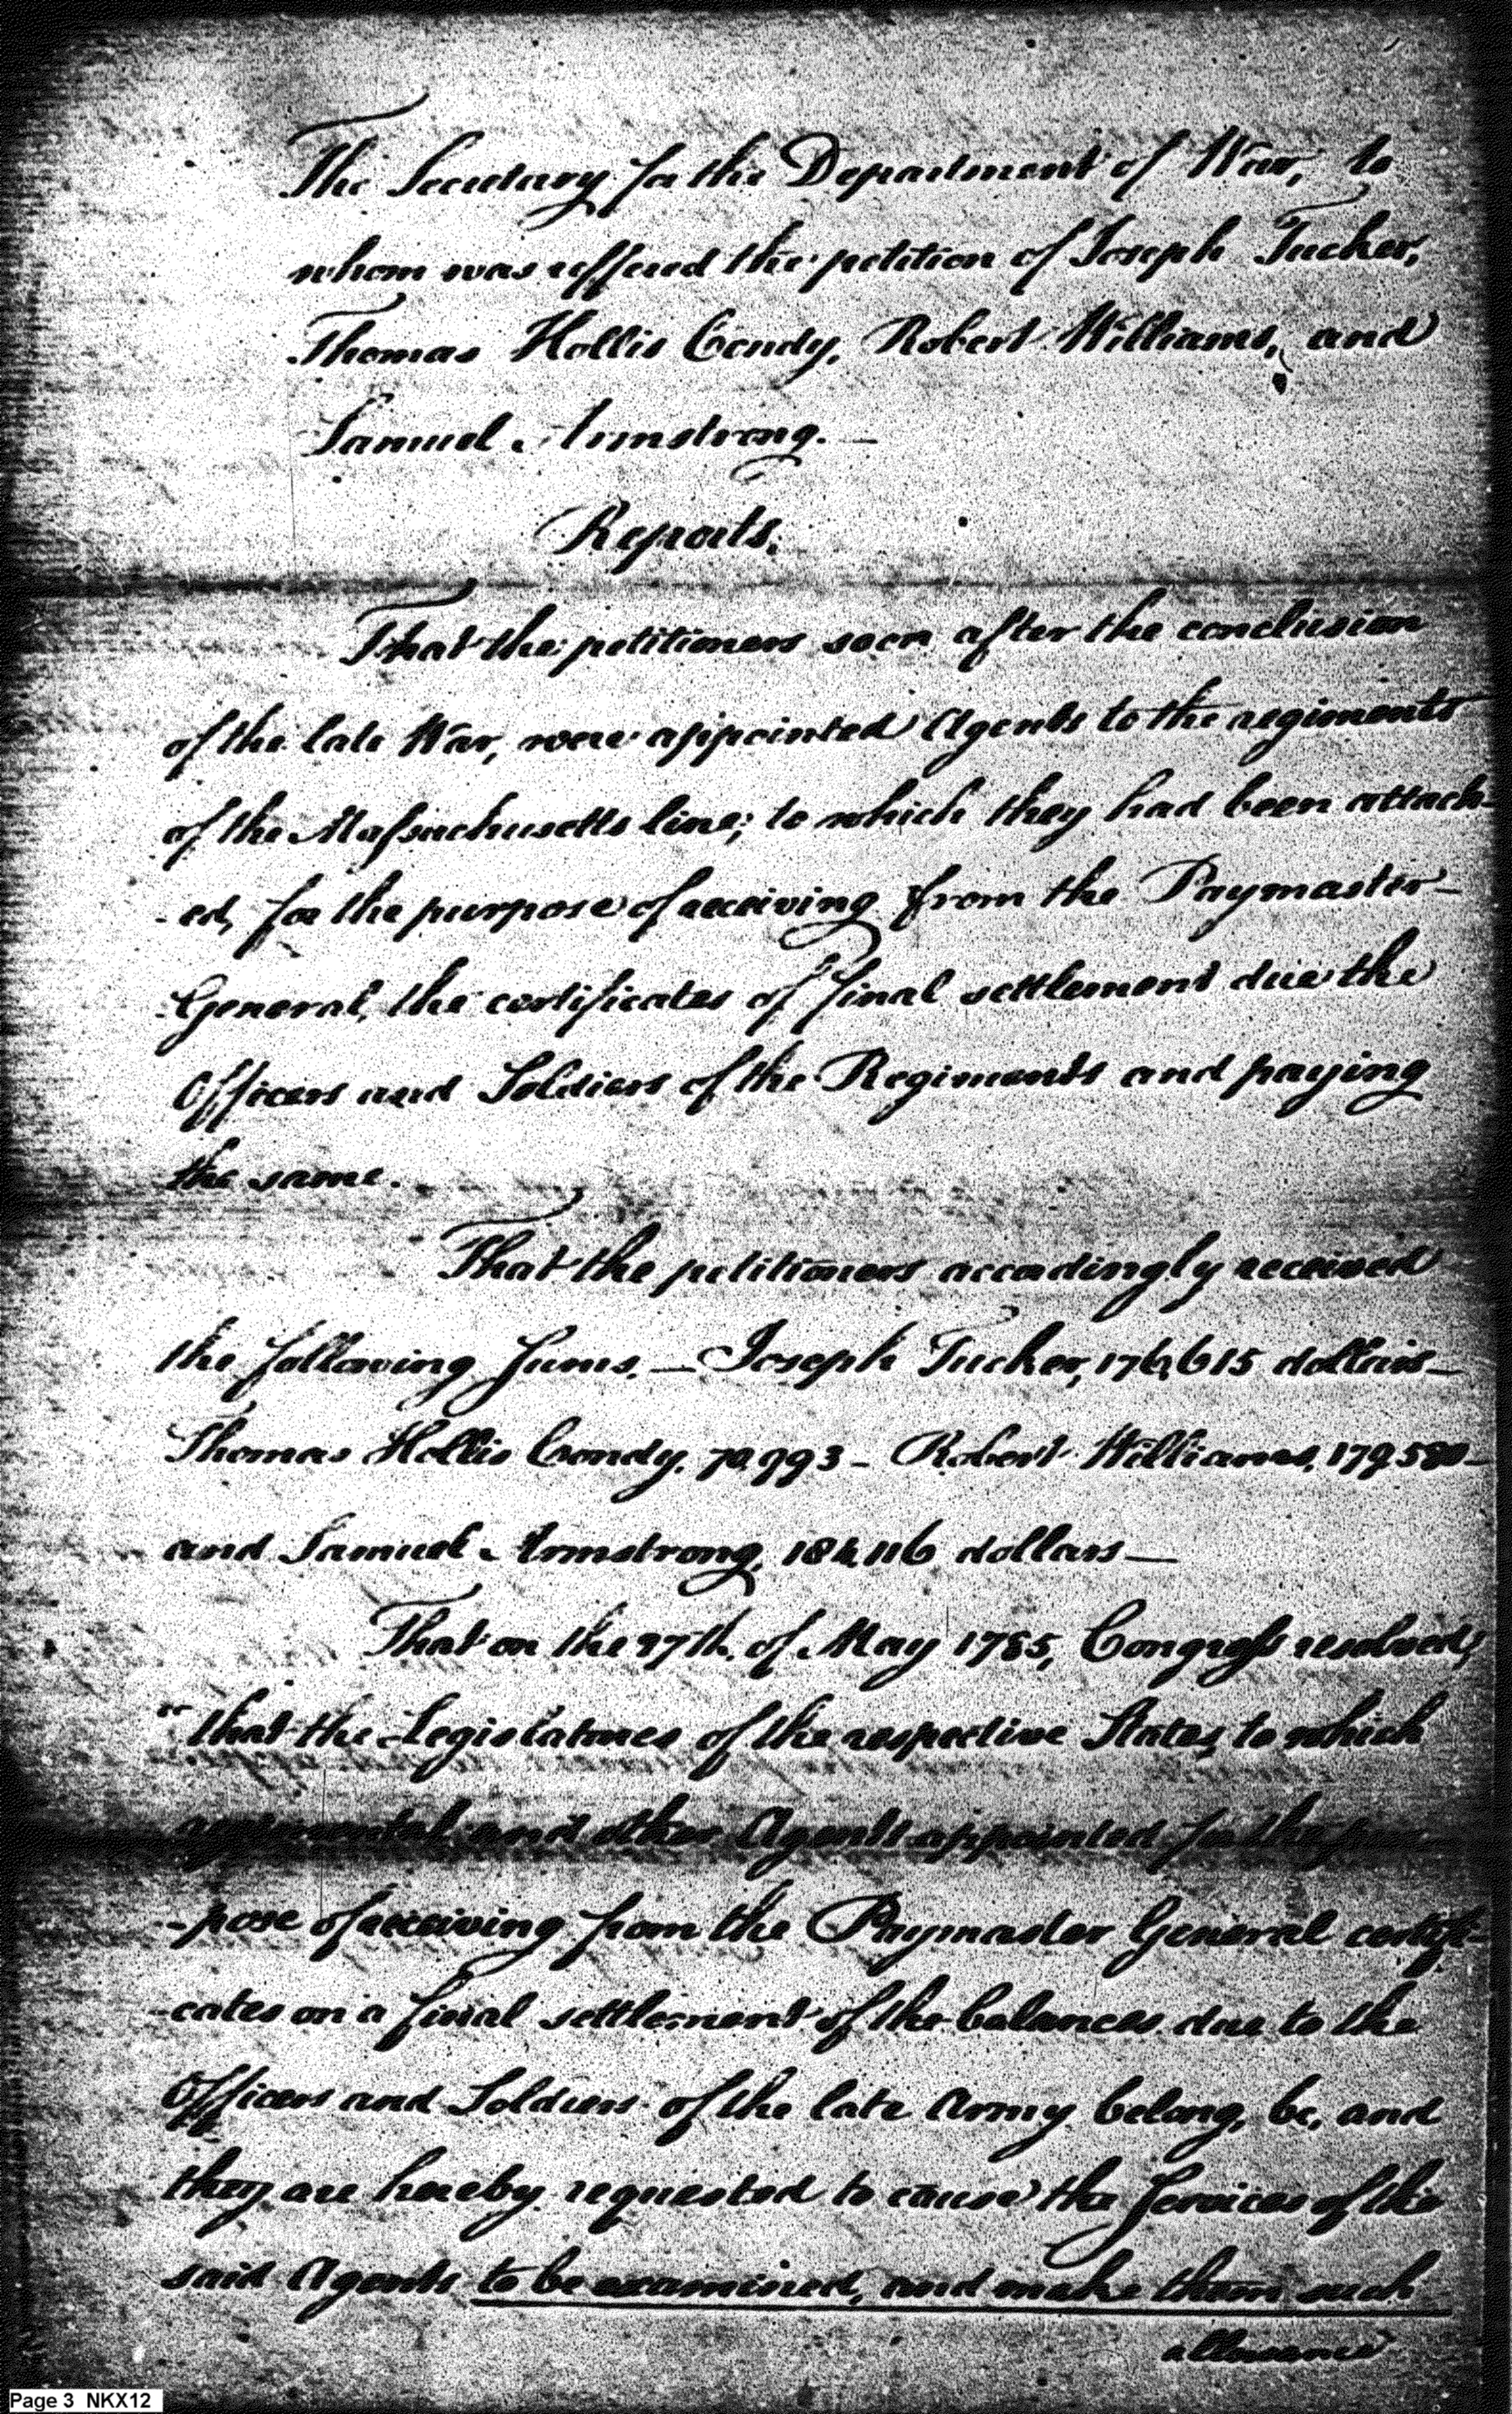 The Secretary for the Department of War, to
whom was reffered the petition of Joseph Tucker,
Thomas Hollis Condy, Robert Williams, and
Samuel Armstrong. —
Reports.
That the petitioners soon after the conclusion
of the late War, were appointed Agents to the regiments
of the Massachusetts line; to which they had been attach-
-ed, for the purpose of receiving from the Paymaster-
General, the certificates of final settlement due the
Officers and Soldiers of the Regiments and paying
the same.
That the petitioners accordingly received
the following Sums. — Joseph Tucker, 176,615 dollars —
Thomas Hollis Condy, 70,993 — Robert Williams, 179,580 —
and Samuel Armstrong, 184,116 dollars —
That on the 27th. of May 1785, Congress resolved,
"that the Legislatures of the respective States, to which
regimental and other Agents appointed for the pur-
-pose of receiving from the Paymaster General certifi-
-cates on a final settlement of the balances due to the
Officers and Soldiers of the late Army belong, be, and
they are hereby requested to cause the Services of the
said Agents to be examined, and make them such
allowance
Page 3 NKX12